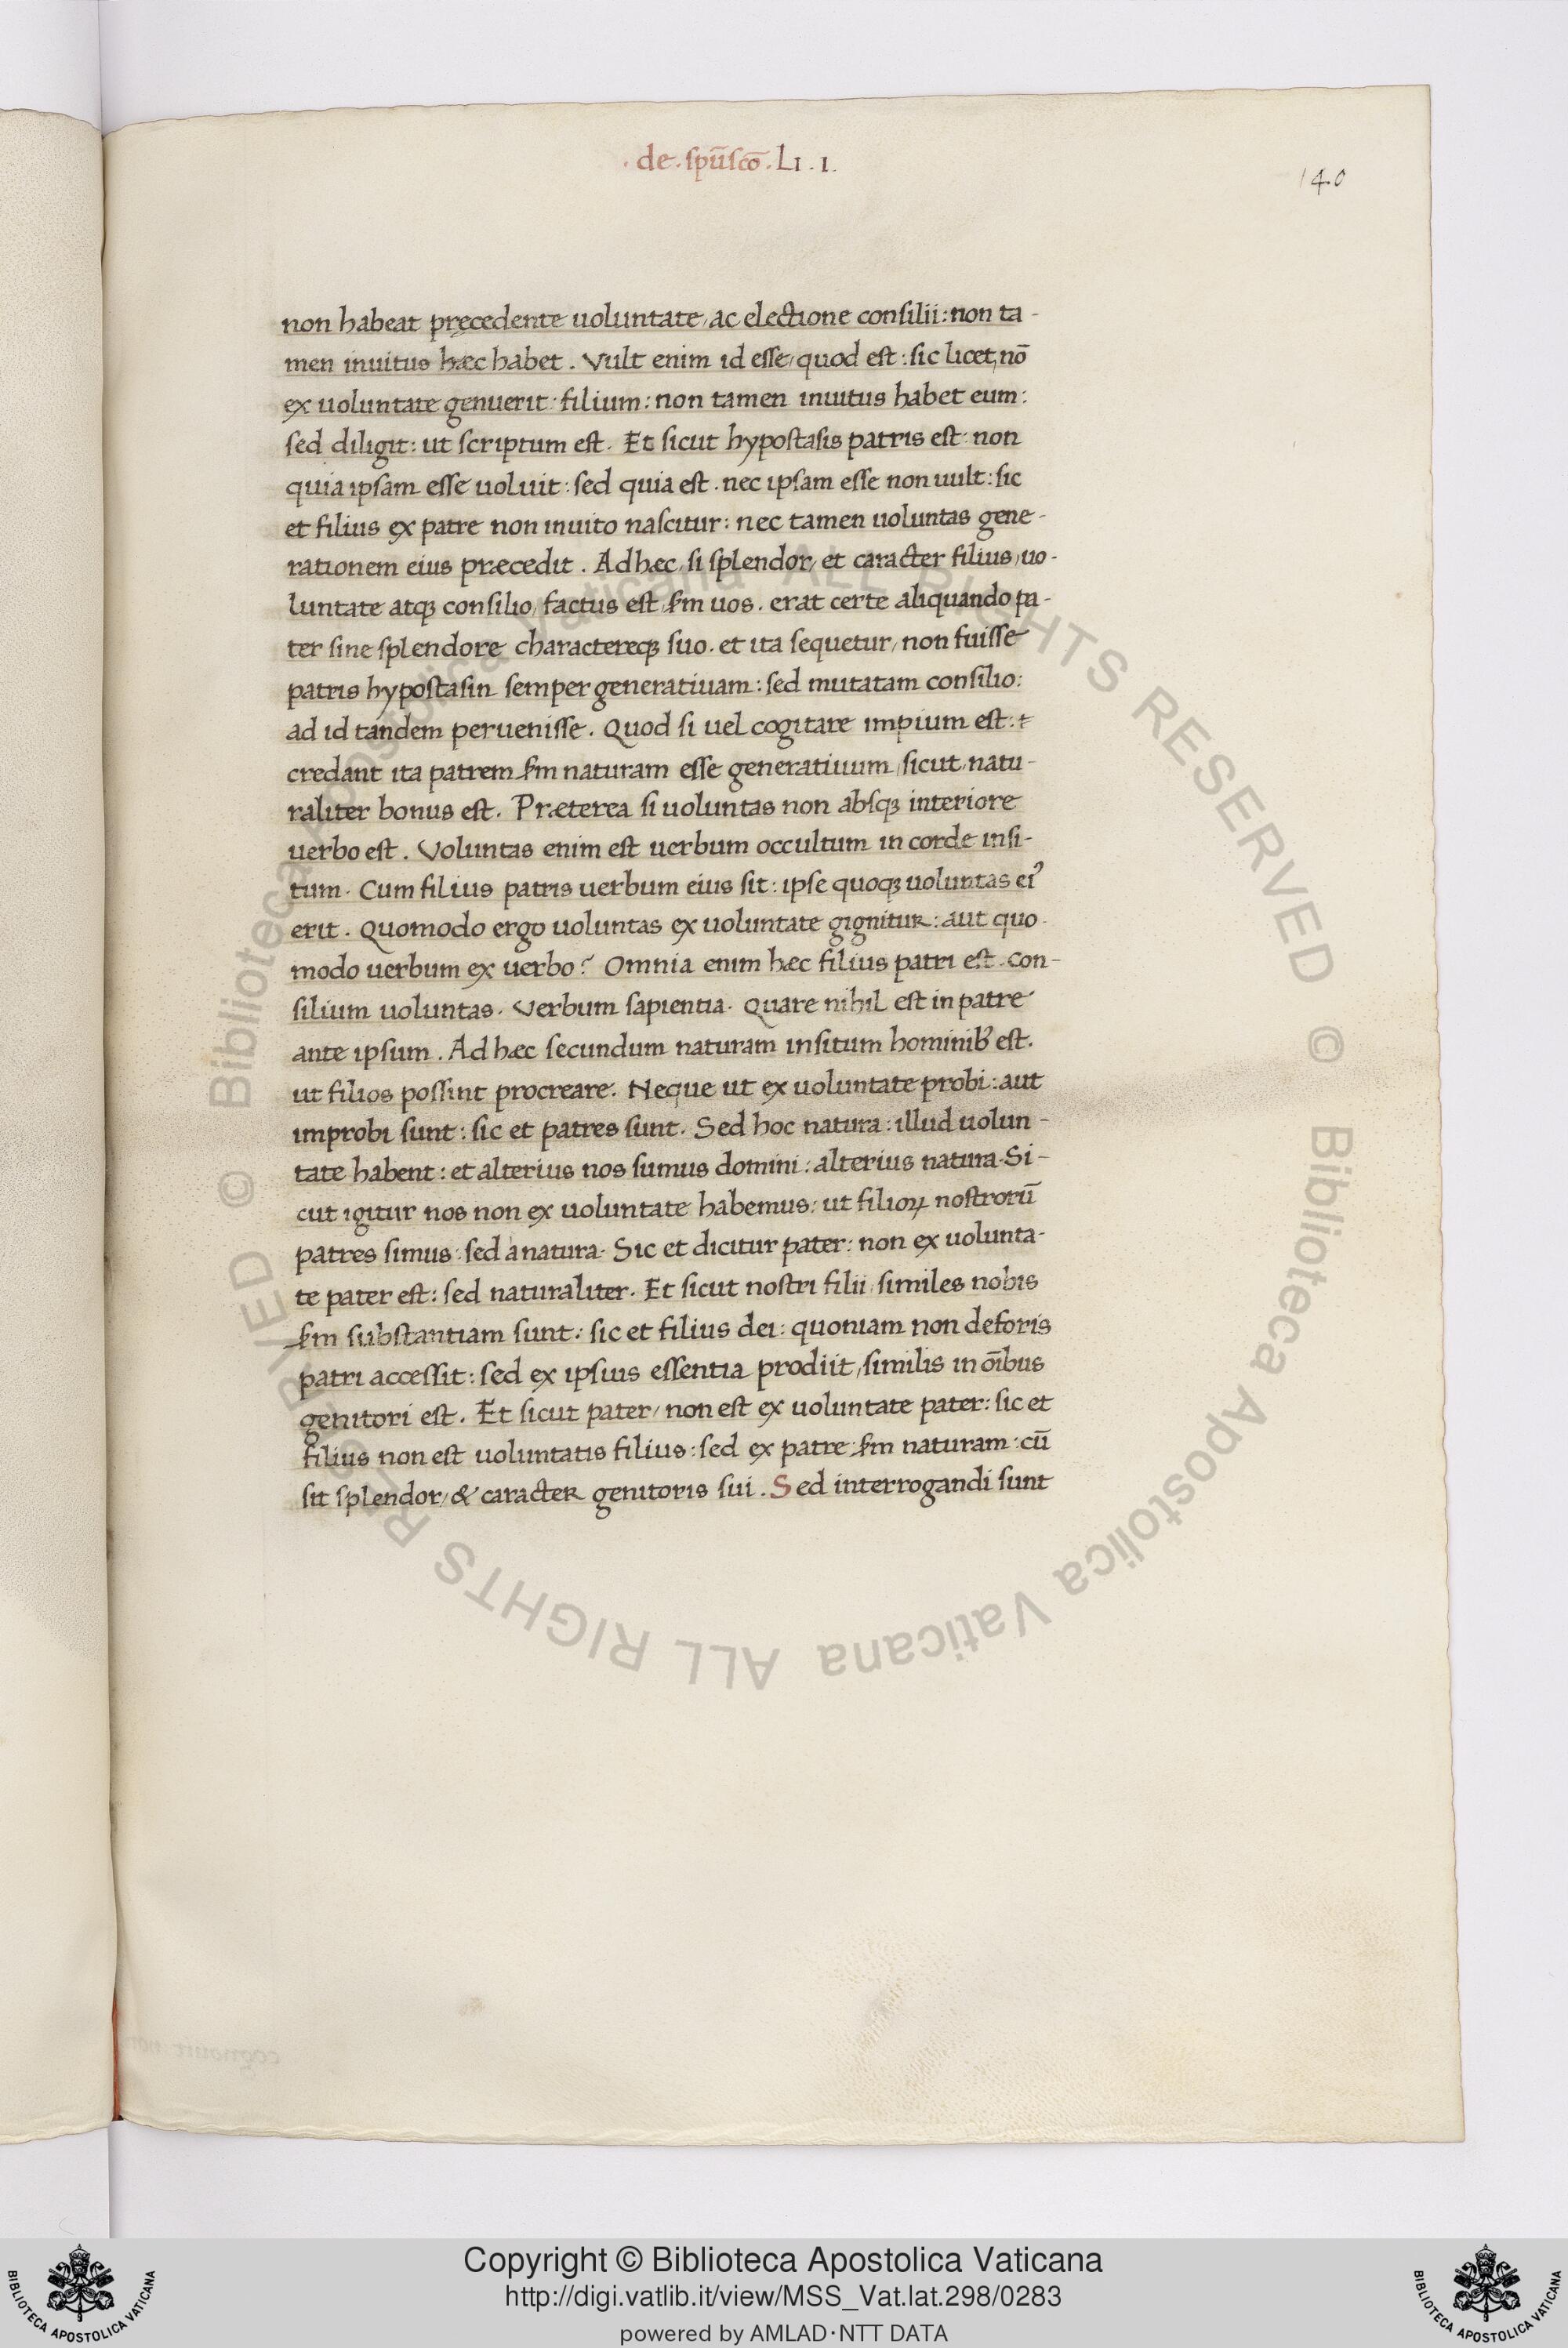 . de . spū scō . LI . I .
140
non habeat pręcedente uoluntate, ac electione consilii: non ta-
men inuitus hæc habet . Vult enim id esse, quod est: sic licet, nō
ex uoluntate genuerit: filium: non tamen inuitus habet eum:
sed diligit: ut scriptum est. Et sicut hypostasis patris est: non
quia ipsam esse uoluit: sed quia est. nec ipsam esse non uult: sic
et filius ex patre non inuito nascitur: nec tamen uoluntas gene-
rationem eius præcedit . Ad hæc, si splendor, et caracter filius, uo-
luntate atqꝫ consilio, factus est, ẜm uos. erat certe aliquando pa-
ter sine splendore charactereqꝫ suo. et ita sequetur, non fuisse
patris hypostasin semper generatiuam: sed mutatam consilio:
ad id tandem peruenisse. Quod si uel cogitare impium est:
credant ita patrem ẜm naturam esse generatiuum, sicut, natu-
raliter bonus est. Præterea si uoluntas non absqꝫ interiore
uerbo est. Voluntas enim est uerbum occultum in corde insi-
tum. Cum filius patris uerbum eius sit: ipse quoqꝫ uoluntas eiꝰ
erit. Quomodo ergo uoluntas ex uoluntate gignitur: aut quo-
modo uerbum ex uerbo? Omnia enim hæc filius patri est. Con-
silium uoluntas. Verbum sapientia. Quare nihil est in patre
ante ipsum. Ad hæc secundum naturam insitum hominibꝰ est.
ut filios possint procreare. Neque ut ex uoluntate probi: aut
improbi sunt: sic et patres sunt. Sed hoc natura: illud uolun-
tate habent: et alterius nos sumus domini: alterius natura. Si-
cut igitur nos non ex uoluntate habemus: ut filioꝝ nostrorū
patres simus: sed a natura. Sic et dicitur pater: non ex uolunta-
te pater est: sed naturaliter. Et sicut nostri filii, similes nobis
ẜm substantiam sunt: sic et filius dei: quoniam non deforis
patri accessit: sed ex ipsius essentia prodiit, similis in oībus
genitori est. Et sicut pater, non est ex uoluntate pater: sic et
filius non est uoluntatis filius: sed ex patre: ẜm naturam: cū
sit splendor, & caracter genitoris sui. Sed interrogandi sunt
© Biblioteca Apostolica Vaticana ALL RIGHTS RESERVED © Biblioteca Apostolica Vaticana ALL RIGHTS RESERVED
Copyright © Biblioteca Apostolica Vaticana
http://digi.vatlib.it/view/MSS_Vat.lat.298/0283
powered by AMLAD·NTT DATA
BIBLIOTECA APOSTOLICA VATICANA
BIBLIOTECA APOSTOLICA VATICANA